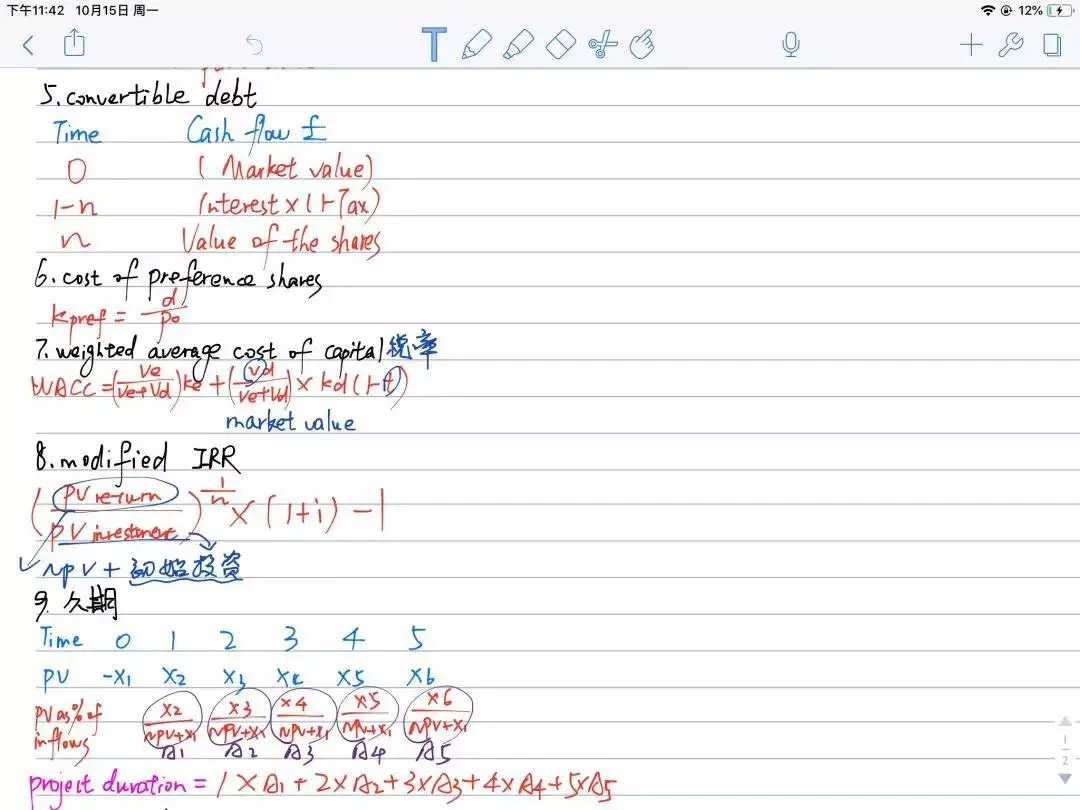 下午11:42 10月15日 周一 12%
5. convertible debt
Time Cash flow £
0 ( Market value)
1-n Interest x (1-Tax)
n Value of the shares
6. cost of preference shares
kpref = d/p0
7. weighted average cost of capital 税率
WACC = (Ve/(Ve+Vd)) ke + (Vd/(Ve+Vd)) x kd (1-t)
market value
8. modified IRR
(PV return/PV investment)^(1/n) x (1+i) - 1
npv + 初始投资
9. 久期
Time 0 1 2 3 4 5
PV -x1 x2 x3 x4 x5 x6
PV as % of inflows x2/(npv+x1) x3/(npv+x1) x4/(npv+x1) x5/(npv+x1) x6/(npv+x1)
A1 A2 A3 A4 A5
project duration = 1 x A1 + 2 x A2 + 3 x A3 + 4 x A4 + 5 x A5
1
2